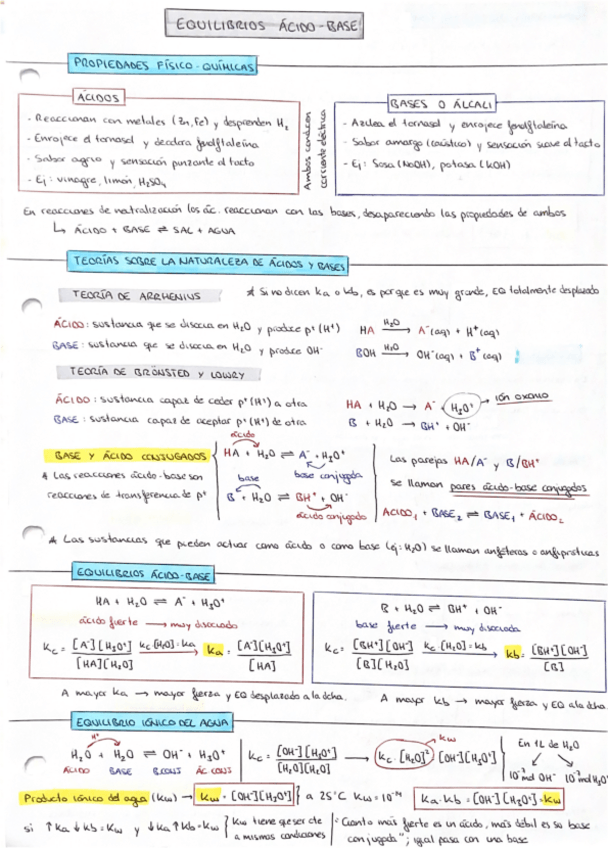 EQUILIBRIOS ÁCIDO-BASE
PROPIEDADES FÍSICO-QUÍMICAS
ÁCIDOS
- Reaccionan con metales (Zn, Fe) y desprenden H₂
- Enrojece el tornasol y decolora fenolftaleína
- Sabor agrio y sensación punzante al tacto
- Ej: vinagre, limón, H₂SO₄
Ambos conducen
corriente eléctrica
BASES O ÁLCALI
- Azulea el tornasol y enrojece fenolftaleína
- Sabor amargo (caústico) y sensación suave al tacto
- Ej: Sosa (NaOH), potasa (KOH)
En reacciones de neutralización los ác. reaccionan con las bases, desapareciendo las propiedades de ambos
↳ ÁCIDO + BASE ⇌ SAL + AGUA
TEORÍAS SOBRE LA NATURALEZA DE ÁCIDOS Y BASES
TEORÍA DE ARRHENIUS
* Si no dicen ka o kb, es porque es muy grande, EQ totalmente desplazado
ÁCIDO: sustancia que se disocia en H₂O y produce p⁺ (H⁺)
HA —H₂O→ A⁻(aq) + H⁺(aq)
BASE: sustancia que se disocia en H₂O y produce OH⁻
BOH —H₂O→ OH⁻(aq) + B⁺(aq)
TEORÍA DE BRÖNSTED Y LOWRY
ÁCIDO: sustancia capaz de ceder p⁺ (H⁺) a otra
HA + H₂O → A⁻ + H₃O⁺ → ión oxonio
BASE: sustancia capaz de aceptar p⁺ (H⁺) de otra
B + H₂O → BH⁺ + OH⁻
BASE Y ÁCIDO CONJUGADOS
* Las reacciones ácido-base son
reacciones de transferencia de p⁺
ácido
HA + H₂O ⇌ A⁻ + H₃O⁺
base base conjugada
B + H₂O ⇌ BH⁺ + OH⁻
ácido conjugado
Las parejas HA/A⁻ y B/BH⁺
se llaman pares ácido-base conjugados
ÁCIDO₁ + BASE₂ ⇌ BASE₁ + ÁCIDO₂
* Las sustancias que pueden actuar como ácido o como base (ej: H₂O) se llaman anfóteros o anfipróticas
EQUILIBRIOS ÁCIDO-BASE
HA + H₂O ⇌ A⁻ + H₃O⁺
ácido fuerte → muy disociado
Kc = [A⁻][H₃O⁺] / [HA][H₂O] —kc·[H₂O] = ka→ ka = [A⁻][H₃O⁺] / [HA]
B + H₂O ⇌ BH⁺ + OH⁻
base fuerte → muy disociada
Kc = [BH⁺][OH⁻] / [B][H₂O] —kc·[H₂O] = kb→ kb = [BH⁺][OH⁻] / [B]
A mayor ka → mayor fuerza y EQ desplazado a la dcha.
A mayor kb → mayor fuerza y EQ a la dcha.
EQUILIBRIO IÓNICO DEL AGUA
H⁺
H₂O + H₂O ⇌ OH⁻ + H₃O⁺
ÁCIDO BASE B.CONJ ÁC CONJ
Kc = [OH⁻][H₃O⁺] / [H₂O][H₂O] → kc·[H₂O]² = [OH⁻][H₃O⁺]
kw
En 1L de H₂O
10⁻⁷ mol OH⁻ 10⁻⁷ mol H₃O⁺
Producto iónico del agua (kw) → Kw = [OH⁻][H₃O⁺] a 25°C Kw = 10⁻¹⁴
Ka·Kb = [OH⁻][H₃O⁺] = kw
si ↑ka ↓kb = Kw y ↓ka ↑kb = kw
Kw tiene que ser cte
a mismas condiciones
"Cuanto más fuerte es un ácido, más débil es su base
conjugada"; igual pasa con una base